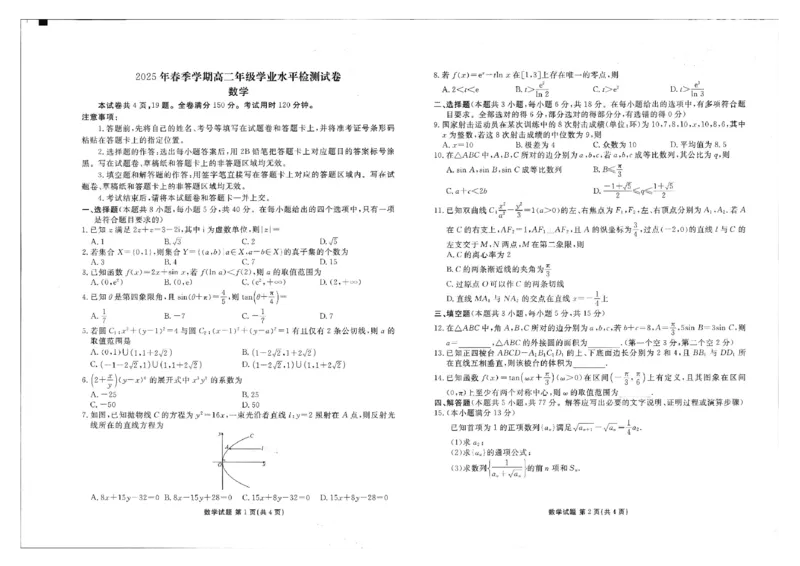 2025年春季学期高二年级学业水平检测试卷
数学
本试卷共4页,19题。全卷满分150分。考试用时120分钟。
注意事项:
1.答题前,先将自己的姓名、考号等填写在试题卷和答题卡上,并将准考证号条形码
粘贴在答题卡上的指定位置。
2.选择题的作答:选出每小题答案后,用2B铅笔把答题卡上对应题目的答案标号涂
黑。写在试题卷、草稿纸和答题卡上的非答题区域均无效。
3.填空题和解答题的作答:用签字笔直接写在答题卡上对应的答题区域内。写在试
题卷、草稿纸和答题卡上的非答题区域均无效。
4.考试结束后,请将本试题卷和答题卡一并上交。
一、选择题(本题共8小题,每小题5分,共40分。在每小题给出的四个选项中,只有一项
是符合题目要求的)
1.已知z满足2z+z=3-2i,其中i为虚数单位,则|z|=
A.1 B.√3 C.2 D.√5
2.若集合X={0,1},则集合Y={(a,b)|a∈X,a-b∈X}的真子集的个数为
A.3 B.4 C.7 D.15
3.已知函数f(x)=2x+sin x,若f(ln a)<f(2),则a的取值范围为
A.(0,e²) B.(0,e) C.(e²,+∞) D.(2,+∞)
4.已知θ是第四象限角,且sin(θ+π)=4/5,则tan(θ+π/4)=
A.1/7 B.-7 C.-1/7 D.7
5.若圆C₁:x²+(y-1)²=4与圆C₂:(x-1)²+(y-a)²=1有且仅有2条公切线,则a的
取值范围是
A.(0,1)∪(1,1+2√2) B.(1-2√2,1+2√2)
C.(-1-2√2,1)∪(1,1+2√2) D.(1-2√2,1)∪(1,1+2√2)
6.(2+x/y)(y-x)⁶的展开式中x³y³的系数为
A.-25 B.25
C.-50 D.50
7.如图,已知抛物线C的方程为y²=16x,一束光沿着直线l:y=2照射在A点,则反射光
线所在的直线方程为
y C
A l
O x
A.8x+15y-32=0 B.8x-15y+28=0 C.15x+8y-32=0 D.15x+8y-28=0
数学试题 第1页(共4页)
8.若f(x)=eˣ-tln x在[1,3]上存在唯一的零点,则
A.2<t<e B.t>e²/ln 2 C.t>e² D.t>e³/ln 3
二、选择题(本题共3小题,每小题6分,共18分。在每小题给出的选项中,有多项符合题
目要求。全部选对的得6分,部分选对的得部分分,有选错的得0分)
9.国家射击运动员在某次训练中的8次射击成绩(单位:环)为10,7,8,10,x,10,8,6,其中
x为整数,若这8次射击成绩的中位数为9,则
A.x=10 B.极差为4 C.众数为10 D.平均值为8.5
10.在△ABC中,A,B,C所对的边分别为a,b,c,若a,b,c成等比数列,其公比为q,则
A.sin A,sin B,sin C成等比数列 B.B≤π/3
C.a+c<2b D.(-1+√5)/2≤q≤(1+√5)/2
11.已知双曲线C:x²/a²-y²/3=1(a>0)的左、右焦点为F₁,F₂,左、右顶点分别为A₁,A₂.若A
左支交于M,N两点,M在第二象限,则
A.C的离心率为2
B.C的两条渐近线的夹角为π/3
C.过原点O可以作C的两条切线
D.直线MA₁与NA₂的交点在直线x=-1/4上
三、填空题(本题共3小题,每小题5分,共15分)
12.在△ABC中,角A,B,C所对的边分别为a,b,c,若b+c=8,A=π/3,5sin B=3sin C,则
a=______,△ABC的外接圆的面积为______.(第一个空3分,第二个空2分)
13.已知正四棱台ABCD-A₁B₁C₁D₁的上、下底面边长分别为2和4,且BB₁与DD₁所
在直线互相垂直,则该棱台的体积为______.
14.已知函数f(x)=tan(ωx+π/3)(ω>0)在区间(-π/3,π/6)上有定义,且其图象在区间
(0,π)上至少有两个对称中心,则ω的取值范围为______.
四、解答题(本题共5小题,共77分。解答应写出必要的文字说明、证明过程或演算步骤)
15.(本小题满分13分)
已知首项为1的正项数列{aₙ}满足√aₙ₊₁-√aₙ=1/4a₂.
(1)求a₂;
(2)求{aₙ}的通项公式;
(3)求数列{1/(aₙ+√aₙ)}的前n项和Sₙ.
数学试题 第2页(共4页)